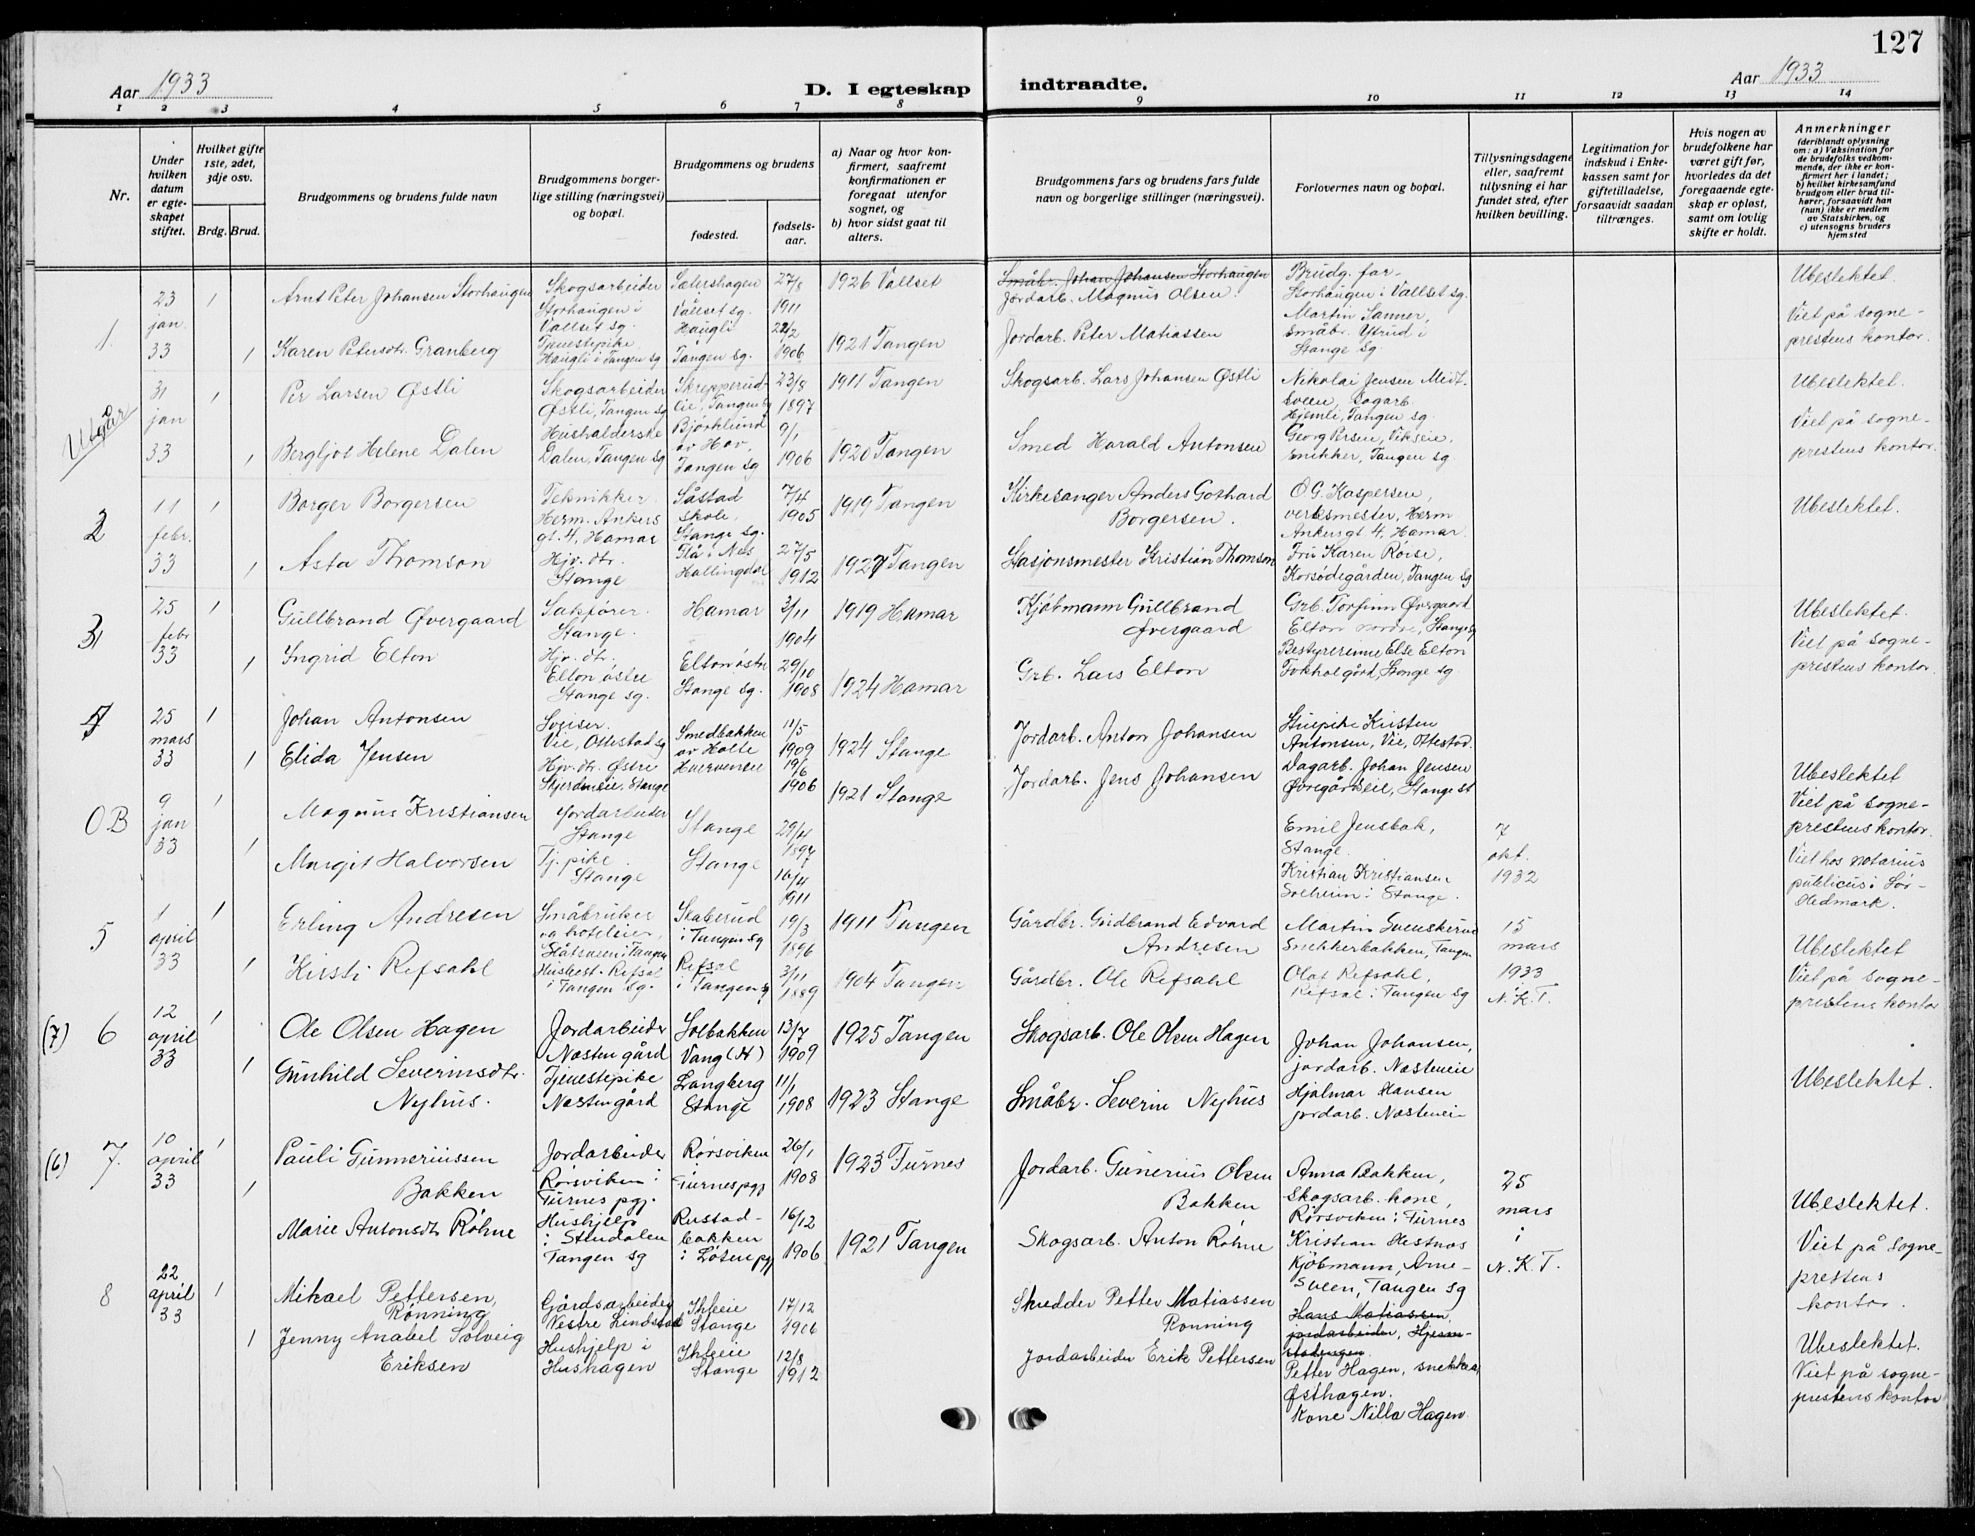 127
Aar 1933
D. I egteskap
indtraadte.
Aar 1933
1 2 3 4 5 6 7 8
9 10 11 12 13 14
Nr.
Under hvilken datum er egteskapet stiftet.
Hvilket gifte 1ste, 2det, 3dje osv.
Brdg. Brud.
Brudgommens og brudens fulde navn
Brudgommens borgerlige stilling (næringsvei) og bopæl.
Brudgommens og brudens
fødested.
fødselsaar.
a) Naar og hvor konfirmert, saafremt konfirmationen er foregaat utenfor sognet, og
b) hvor sidst gaat til alters.
Brudgommens fars og brudens fars fulde navn og borgerlige stillinger (næringsvei).
Forlovernes navn og bopæl.
Tillysningsdagene eller, saafremt tillysning ei har fundet sted, efter hvilken bevilling.
Legitimation for indskud i Enkekassen samt for giftetilladelse, forsaavidt saadan tiltrænges.
Hvis nogen av brudefolkene har været gift før, hvorledes da det foregaaende egteskap er opløst, samt om lovlig skifte er holdt.
Anmerkninger (deriblandt oplysning om: a) Vaksination for de brudefolks vedkommende, der ikke er konfirmert her i landet; b) hvilket kirkesamfund brudgom eller brud tilhører, forsaavidt han (hun) ikke er medlem av Statskirken, og c) utensogns bruders hjemsted
1. 23 jan. 33
1 Arnt Peter Johansen Storhaugen
Skogsarbeider Storhaugen i Vallset sg.
Sætershagen Vallset sg.
27/8 1911
1926 Vallset
Småbr. Johan Johansen Storhaugen
Jordarb. Magnus Olsen.
Brudg. far - Storhaugen i Vallset sg.
Ubeslektet.
1 Karen Petersdtr. Granberg
Tjenestepike Haugli i Tangen sg
Haugli Tangen sg.
22/2 1906
1921 Tangen
Jordarb. Peter Matiassen
Martin Sanner, Småbr. Ytrud i Stange sg.
Viet på sogneprestens kontor.
Utgår
31 jan 33
1 Per Larsen Østli
Skogsarbeider Østli, Tangen sg
Skrepperudlie, Tangen sg
23/8 1897
1911 Tangen
Skogsarb. Lars Johansen Østli
Nikolai Jensen Midtsveen, sagarb. Hjemli, Tangen sg.
Ubeslektet.
1 Bergljot Helene Dalen
Husholderske Dalen, Tangen sg
Bjørklund av Hov, Tangen sg
9/1 1906
1920 Tangen
Smed Harald Antonsen
Georg Persen, Vikseie, snikker, Tangen sg.
Viet på sogneprestens kontor.
2 11 febr. 33
1 Borger Borgersen
Teknikker Herm. Ankers gt. 4, Hamar
Såstad skole, Stange sg.
7/4 1905
1919 Tangen
Kirkesanger Anders Gothard Borgersen.
O.G. Kaspersen, verksmester, Herm Ankersgt 4, Hamar.
Ubeslektet.
1 Asta Thomson
Hjv. dtr. Stange
Flå i Nes Hallingdal
27/5 1912
1927 Tangen
Stasjonsmester Kristian Thomson
Fru Karen Roise, Korsødegården, Tangen sg
3 25 febr 33
1 Gullbrand Øvergaard
Sakfører. Stange.
Hamar
3/11 1904
1919 Hamar
Kjøbmann Gullbrand Øvergaard
Grb. Torfinn Øvergaard Elton nordre, Stange sg
Ubeslektet.
1 Ingrid Elton
Hjv. dtr. Elton østre Stange sg.
Elton østre Stange sg.
29/10 1908
1924 Hamar
Grb. Lars Elton
Bestyrerinne Else Elton Fokholgård, Stange sg.
Viet på sogneprestens kontor.
4 25 mars 33
1 Johan Antonsen
Sveiser. Vie, Ottestad sg
Smedbakken av Holte
11/5 1909
1924 Stange
Jordarb. Anton Johansen
Stuepike Kirsten Antonsen, Vie, Ottestad.
1 Elida Jensen
Hjv. dtr. Østre Skjerdneie, Stange
19/6 1906
1921 Stange
Jordarb. Jens Johansen
Dagarb. Johan Jensen Øvregårdseie, Stange st
Ubeslektet
Viet på sogneprestens kontor.
OB 9 jan 33
1 Magnus Kristiansen
Jordarbeider Stange
Stange
29/4 1897
Emil Jensbak, Stange.
7 okt. 1932
Viet hos notarius publicus i Sør-Hedmark.
1 Margit Halvorsen
Tj. pike. Stange
Stange
16/4 1911
Kristian Kristiansen Solheim i Stange.
5 1 april 33
1 Erling Andresen
Småbruker og hoteleier, i Tangen
Skaberud i Tangen sg
19/3 1896
1911 Tangen
Gårdbr. Gudbrand Edvard Andresen
Martin Svenskerud Snekkerbakken, Tangen
15 mars 1933 i N.K.T.
Ubeslektet
1 Kirsti Refsahl
Husbest. Refsal i Tangen sg.
Refsal i Tangen sg
3/11 1889
1904 Tangen
Gårdbr. Ole Refsahl
Olaf Refsahl, Refsal i Tangen sg
Viet på sogneprestens kontor
(7) 6 12 april 33
1 Ole Olsen Hagen
Jordarbeider Næsten gård
Solbakken Vang (H)
13/7 1909
1925 Tangen
Skogsarb. Ole Olsen Hagen
Johan Johansen, jordarb. Næsteneie
1 Gunhild Severinsdtr. Nyhus.
Tjenestepike Næsten gård
Langberg Stange
11/1 1908
1923 Stange
Småbr. Severin Nyhus
Hjalmar Hansen jordarb. Næsteneie
Ubeslektet.
(6) 7. 10 april 33
1 Pauli Gunneriussen Bakken
Jordarbeider Rørsviken i Furnes pgj.
Rørsviken Furnes pgj
26/1 1908
1923 Furnes
Jordarb. Gunerius Olsen Bakken
Anna Bakken, Skogsarb. kone, Rørsviken i Furnes
25 mars i N.K.T.
Ubeslektet.
1 Marie Antonsdtr Røhne
Hushjelp i Stendalen Tangen sg
Rustadbakken i Løten pgj
16/12 1906
1921 Tangen
Skogsarb. Anton Røhne
Kristian Hestnes Kjøbmann, Arnesveen, Tangen sg
Viet på sogneprestens kontor.
8 22 april 33
1 Mikael Pettersen, Rønning
Gårdsarbeider Vestre Lindstad
Ihleie Stange
17/12 1906
Skredder Petter Matiassen Rønning
Hans Matiassen, jordarbeider, Hjemstadengen.
Petter Hagen, snekker, Østhagen.
Ubeslektet.
1 Jenny Anabel Solveig Eriksen
Hushjelp i Hushagen
Ihleie Stange
12/8 1912
Jordarbeider Erik Pettersen
Kone Nilla Hagen
Viet på sogneprestens kontor